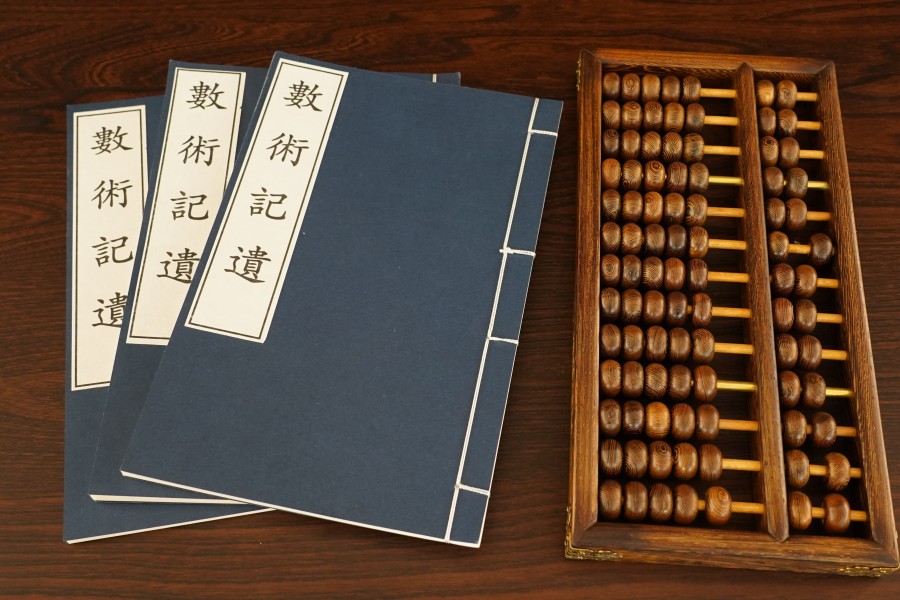 數術記遺
數術記遺
數術記遺